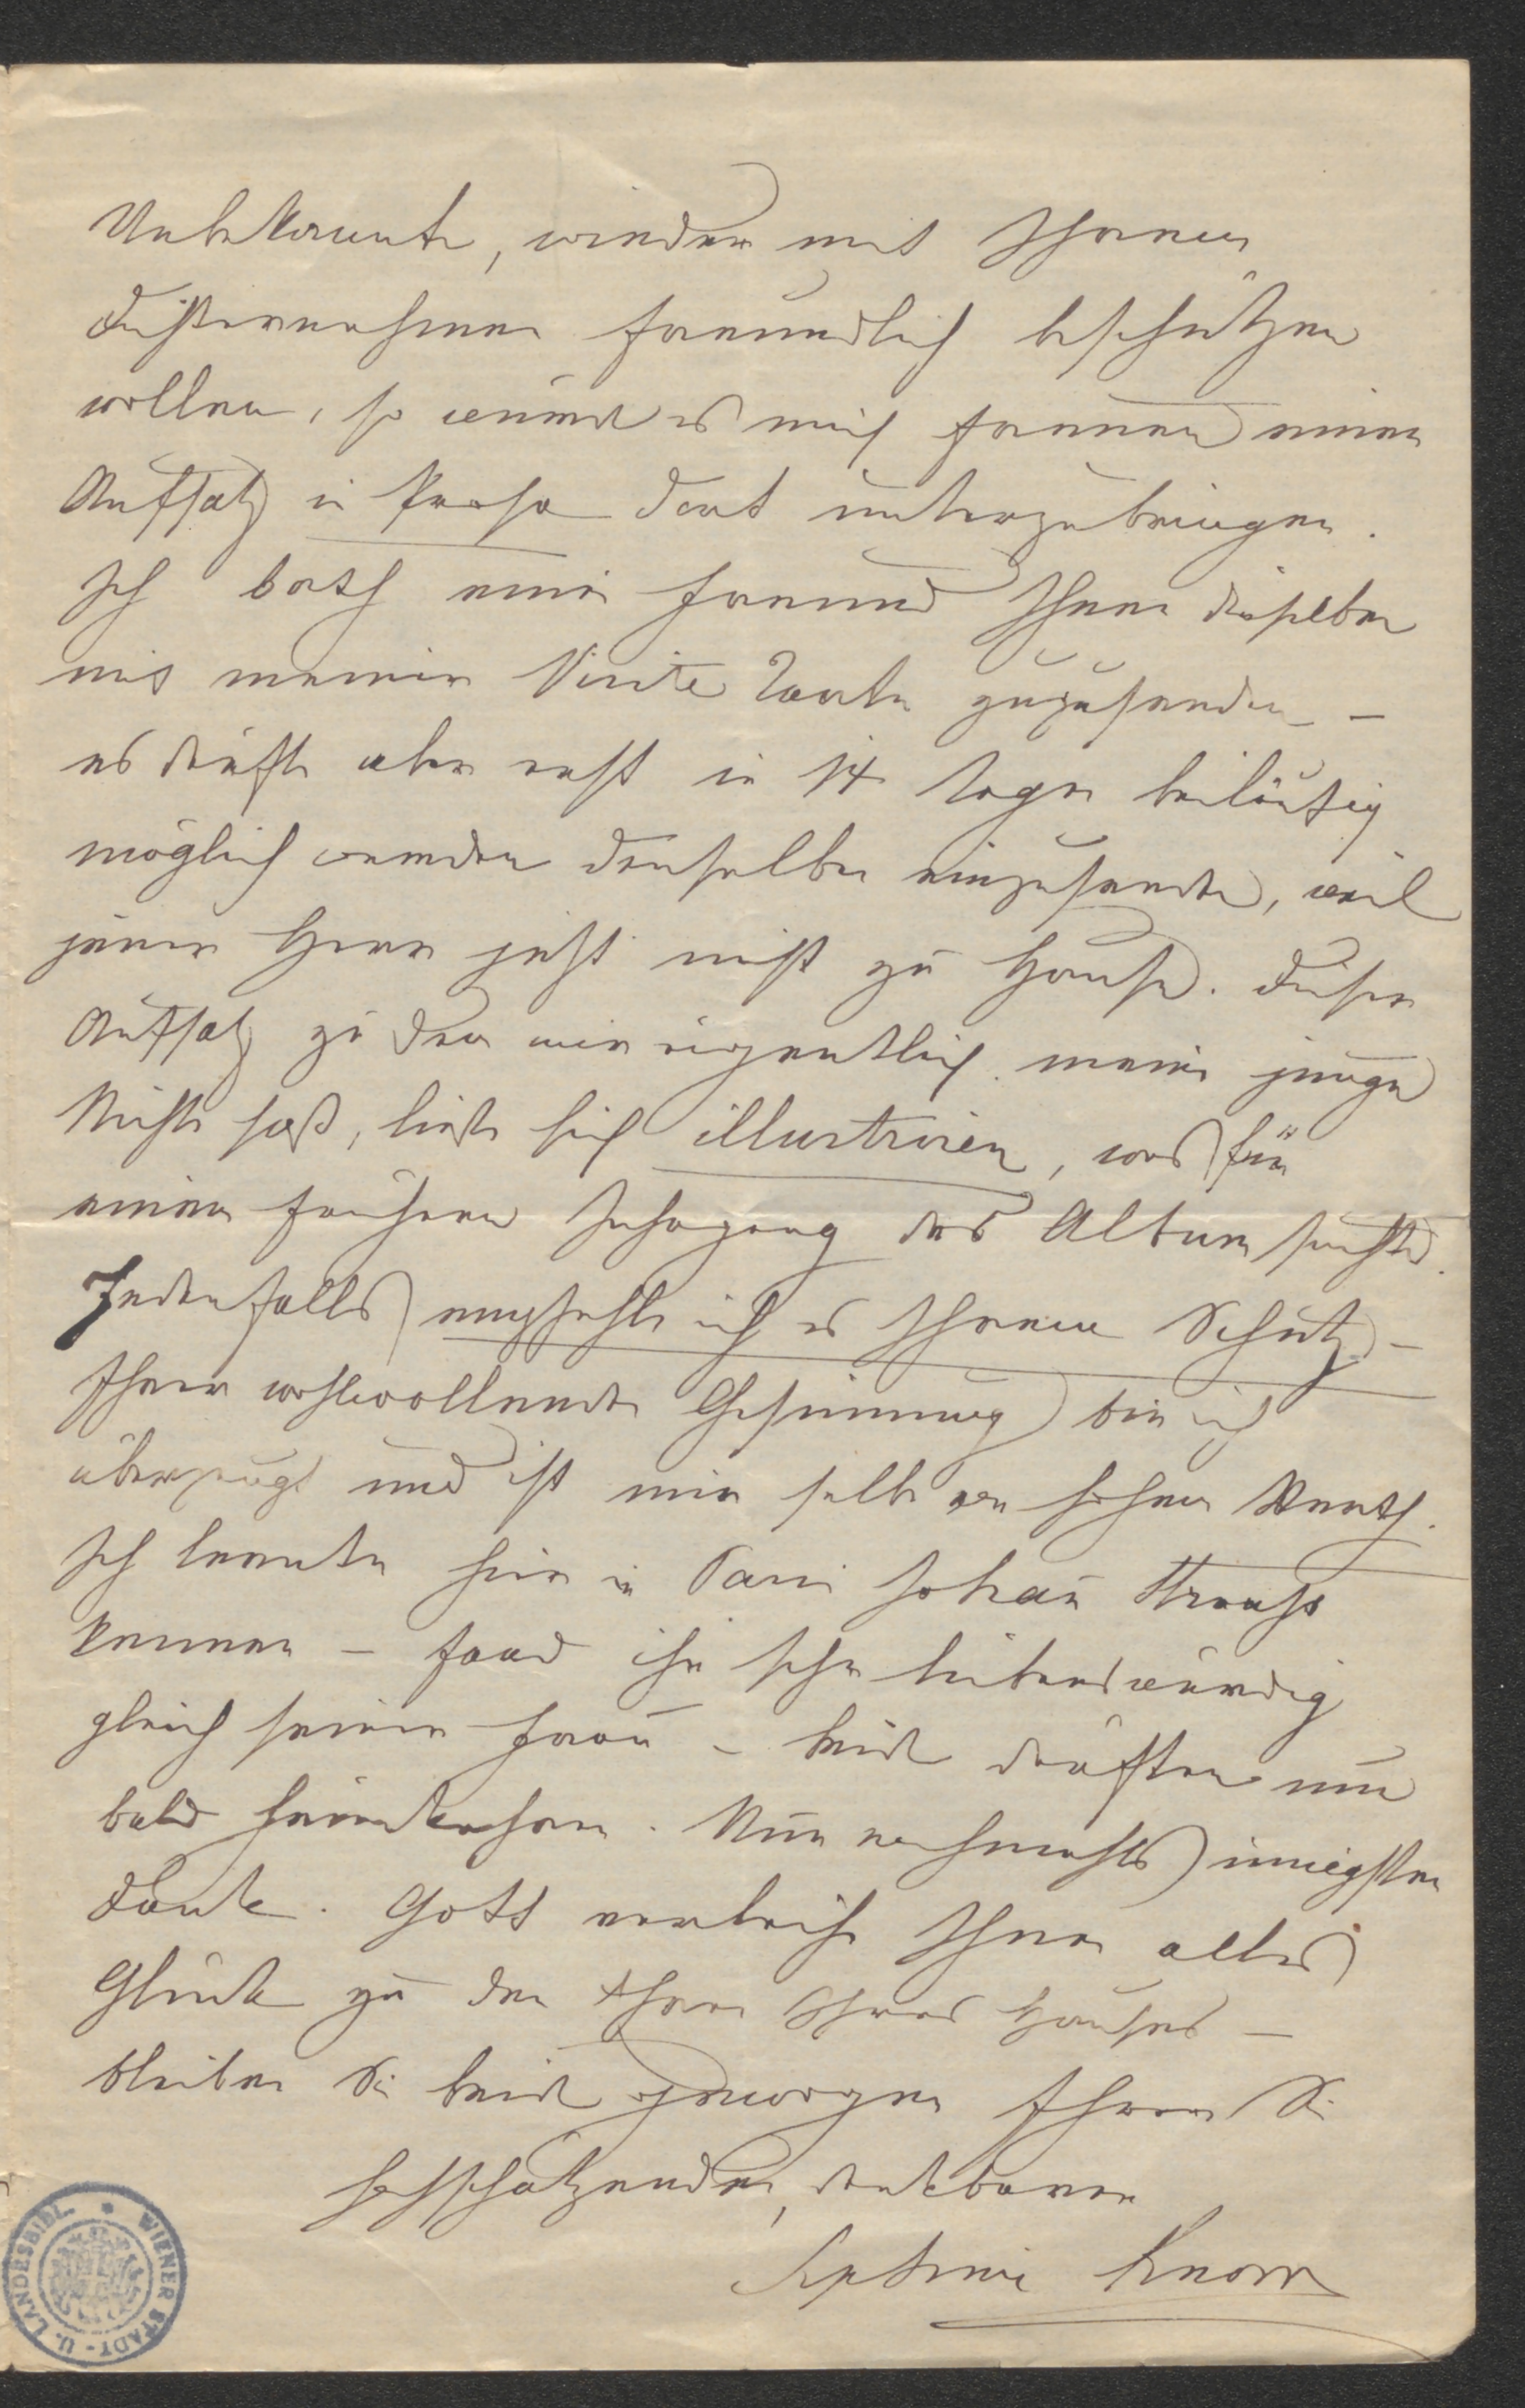 Unbekannte, wieder mit Ihrem
freundlich beschützen
wollen, so würde es mich freuen einen
Aufsatz in Prosa dort unterzubringen.
Ich bath einen Freund Ihnen denselben
mit meiner Visite Carte zuzusenden –
es dürfte aber erst in 14 Tagen beiläufig
möglich werden denselben einzusenden, weil
jener Herr jetzt nicht zu Hause. Dieser
Aufsatz zu dem mir eigentlich meine junge
Nichte saß, ließe sich illustriren, was für
einen frühern Jahrgang des Album
Jedenfalls empfehle ich es Ihrem Schutz –
Ihrer wohlwollenden Gesinnung bin ich
überzeugt und ist mir selbe von hohem Werth.
Ich lernte hier in Johañ Strauss
kennen – fand ihn sehr liebenswürdig
gleich seiner Frau – beide dürften nun
bald heimkehren. Nun nochmahls innigsten
Dank. Gott verleihe Ihnen alles
Glück zu den Ihres Hauses –
bleiben Sie beide gewogen Ihrer Sie
hochschätzenden, dankbaren
Knorr
WIENER STADT- U. LANDESBIBL.